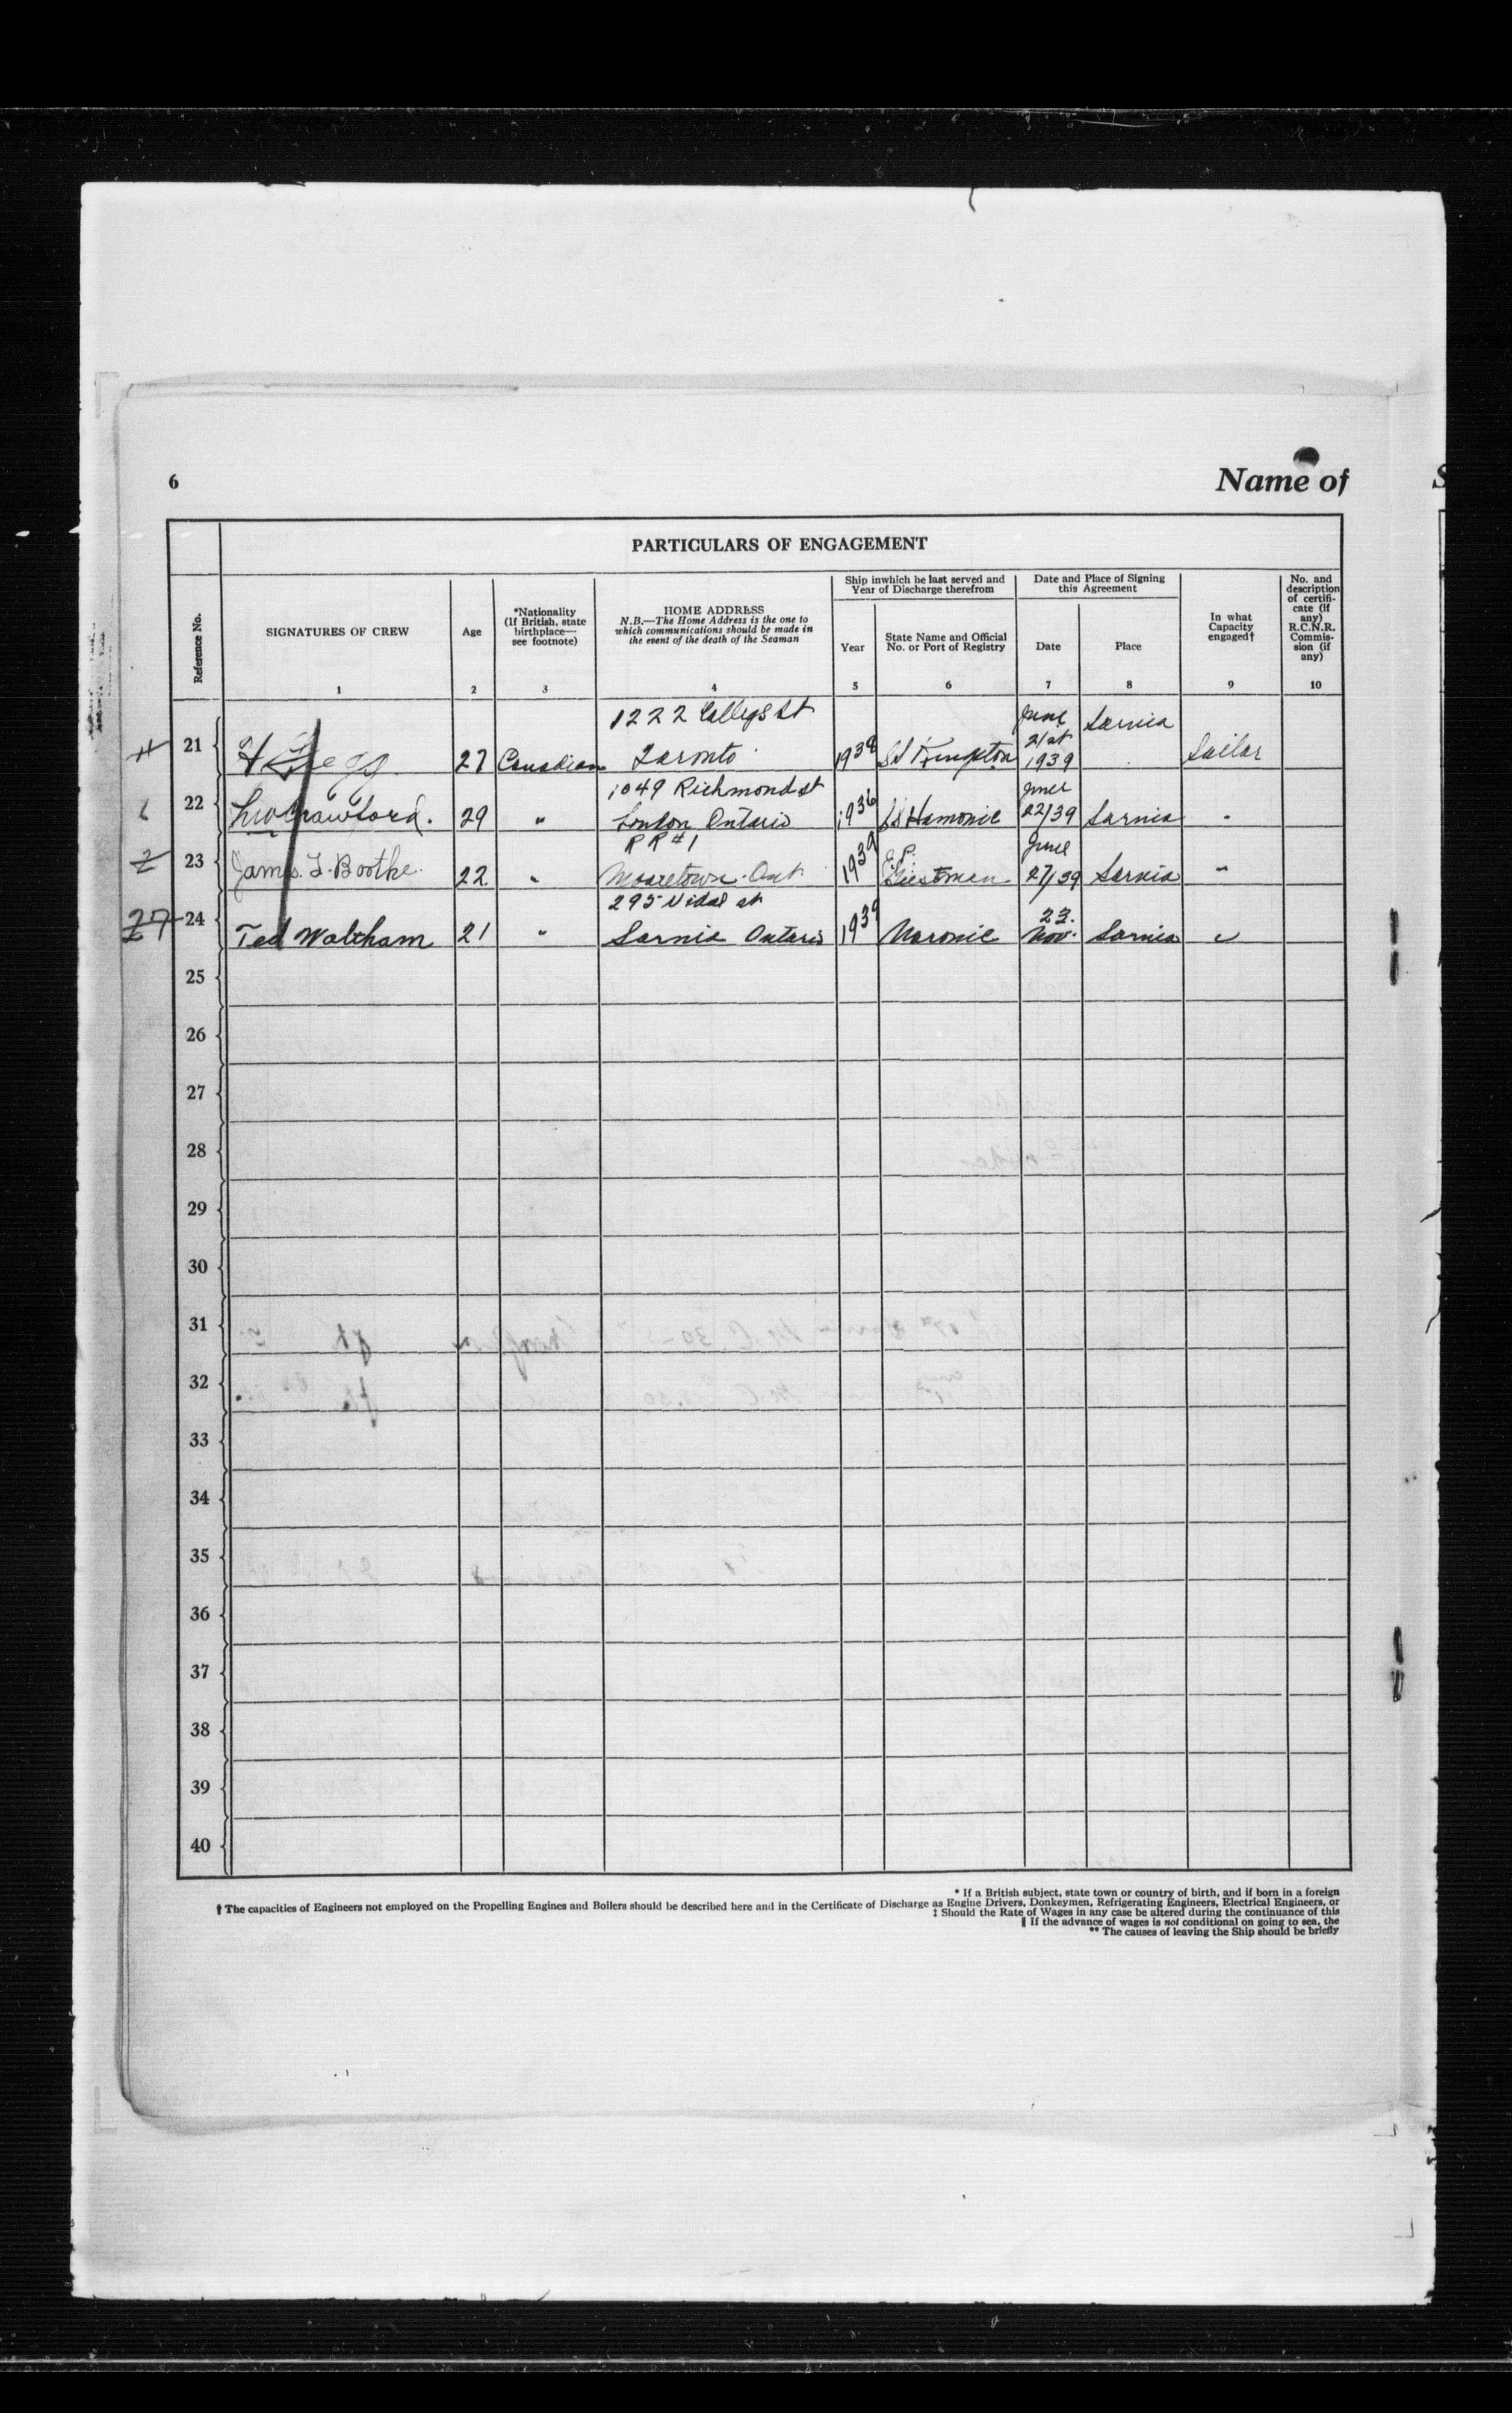 6
Name of
PARTICULARS OF ENGAGEMENT
Reference No.
SIGNATURES OF CREW
Age
*Nationality
(If British, state
birthplace—
see footnote)
HOME ADDRESS
N.B.—The Home Address is the one to
which communications should be made in
the event of the death of the Seaman
Ship inwhich he last served and
Year of Discharge therefrom
Year
State Name and Official
No. or Port of Registry
Date and Place of Signing
this Agreement
Date
Place
In what
Capacity
engaged†
No. and
description
of certifi-
cate (if
any)
R.C.N.R.
Commis-
sion (if
any)
1 2 3 4 5 6 7 8 9 10
1222 College St
June
Sarnia
21 H 27 Canadian Toronto 1938 SS 21st 1939 Sailor
1049 Richmond st
June
22 Crawford. 29 " London Ontario 1936 SS Hamonic 22/39 Sarnia "
R R #1
June
23 James. Boothe. 22 " Mooretown. Ont 1939 27/39 Sarnia "
295 Vidal st
23.
27 24 Ted Waltham 21 " Sarnia Ontario 1939 Noronic Nov. Sarnia "
25
26
27
28
29
30
31
32
33
34
35
36
37
38
39
40
* If a British subject, state town or country of birth, and if born in a foreign
† The capacities of Engineers not employed on the Propelling Engines and Boilers should be described here and in the Certificate of Discharge as Engine Drivers, Donkeymen, Refrigerating Engineers, Electrical Engineers, or
‡ Should the Rate of Wages in any case be altered during the continuance of this
‖ If the advance of wages is not conditional on going to sea, the
** The causes of leaving the Ship should be briefly